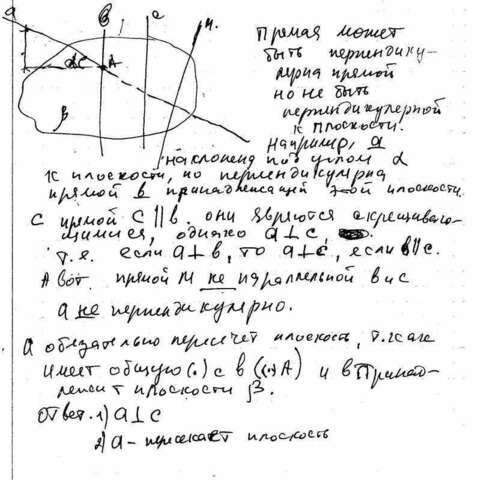 а
в
с
м.
α
А
β
Прямая может
быть перпендику-
лярна прямой
но не быть
перпендикулярной
к плоскости.
Например, а
наклонена под углом α
к плоскости, но перпендикулярна
прямой в принадлежащей этой плоскости.
С прямой С || в. они являются скрещиваю-
щимися, однако а ⊥ с
т.е. если а ⊥ в, то а ⊥ с, если в || с.
А вот прямой м не параллельной в и с
а не перпендикулярно.
а обязательно пересечёт плоскость, т.к
имеет общую (·) с в ((·) А) и в принад-
лежит плоскости β.
Ответ. 1) а ⊥ с
2) а - пересекает плоскость